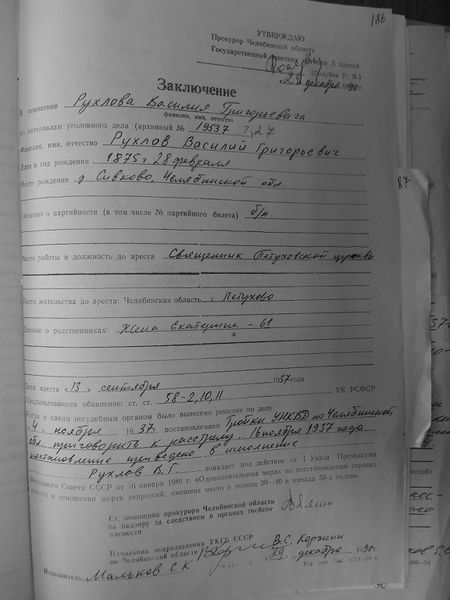 186
УТВЕРЖДАЮ
Прокурор Челябинской области
Государственный советник юстиции 3 класса
декабря 1990 г.
Заключение
В отношении Рухлова Василия Григорьевича
фамилия, имя, отчество
по материалам уголовного дела (архивный № 19537 т, 27
Фамилия, имя, отчество Рухлов Василий Григорьевич
Дата и год рождения 1875 г 28 февраля
Место рождения д Сивково, Челябинской обл.
Сведения о партийности (в том числе № партийного билета) б/п.
Место работы и должность до ареста Священник Петуховской церкви
Место жительства до ареста: Челябинская область с Петухово
Данные о родственниках: Жена - 61
Дата ареста «13» сентября 1937 года
Предъявлявшееся обвинение: ст. ст. 58-2,10,11 УК РСФСР
Когда и каким несудебным органом было вынесено решение по делу
4 ноября 1937, постановлением Тройки УНКВД по Челябинской
обл. приговорить к расстрелу. 16 ноября 1937 года
постановление приведено в исполнение
Рухлов В.Г. попадает под действие ст. 1 Указа Президиума
Верховного Совета СССР от 16 января 1989 г. «О дополнительных мерах по восстановлению справед
ливости в отношении жертв репрессий, имевших место в период 30—40 и начала 50-х годов.
Ст. помощник прокурора Челябинской области
по надзору за следствием в органах госбезо-
пасности
Начальник подразделения УКГБ СССР
по Челябинской области В.С. Коркин
декабря 1990 г.
Исполнитель Мальков С К
87